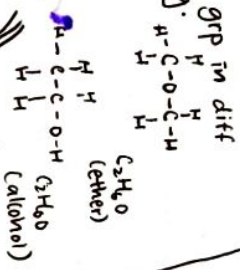 grp in diff
H H
H-C-O-C-H
H H
C2H6O
(ether)
H H
H-C-C-O-H
H H
C2H6O
(alcohol)